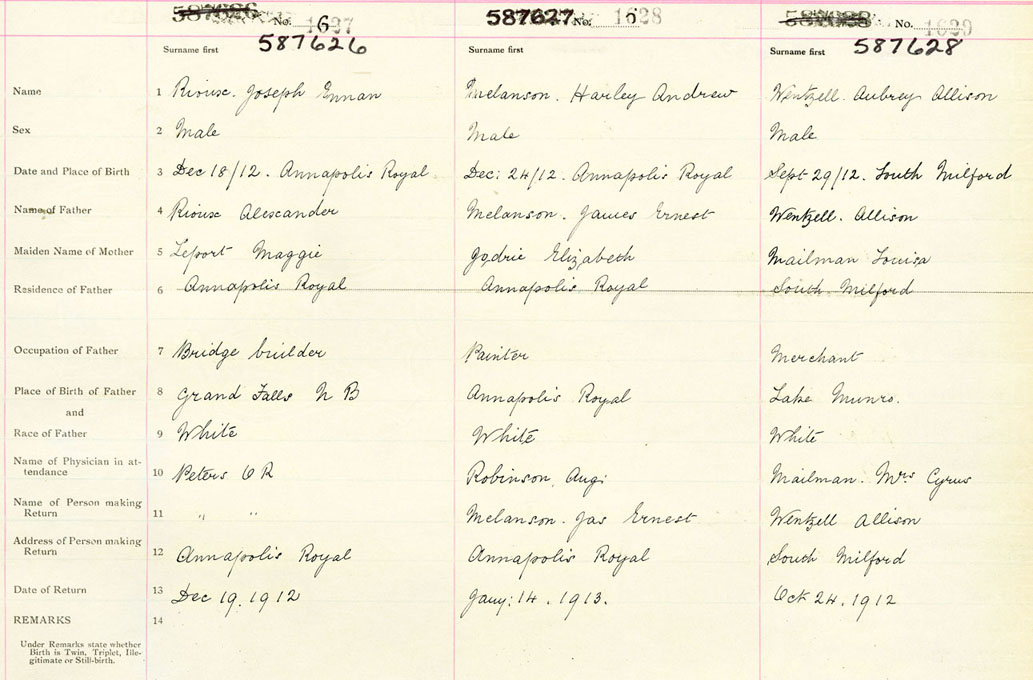 No. 1627 No. 1628 No. 1629
587626 587627 587628
Surname first Surname first Surname first
Name 1 Rioux. Joseph Ennan Melanson. Harley Andrew Wentzell. Aubrey Allison
Sex 2 Male Male Male
Date and Place of Birth 3 Dec 18/12. Annapolis Royal. Dec: 24/12. Annapolis Royal Sept 29/12. South Milford
Name of Father 4 Rioux Alexcander Melanson. James Ernest Wentzell. Allison
Maiden Name of Mother 5 Leport Maggie Godrie Elizabeth Mailman Louisa
Residence of Father 6 Annapolis Royal Annapolis Royal South Milford
Occupation of Father 7 Bridge builder Painter Merchant
Place of Birth of Father 8 Grand Falls N B Annapolis Royal Lake Munro.
and
Race of Father 9 White White White
Name of Physician in at-
tendance 10 Peters O R Robinson. Aug: Mailman. Mrs Cyrus
Name of Person making
Return 11 " " Melanson. Jas Ernest Wentzell Allison
Address of Person making
Return 12 Annapolis Royal Annapolis Royal South Milford
Date of Return 13 Dec 19. 1912 Jany: 14. 1913. Oct 24. 1912
REMARKS 14
Under Remarks state whether
Birth is Twin, Triplet, Ille-
gitimate or Still-birth.